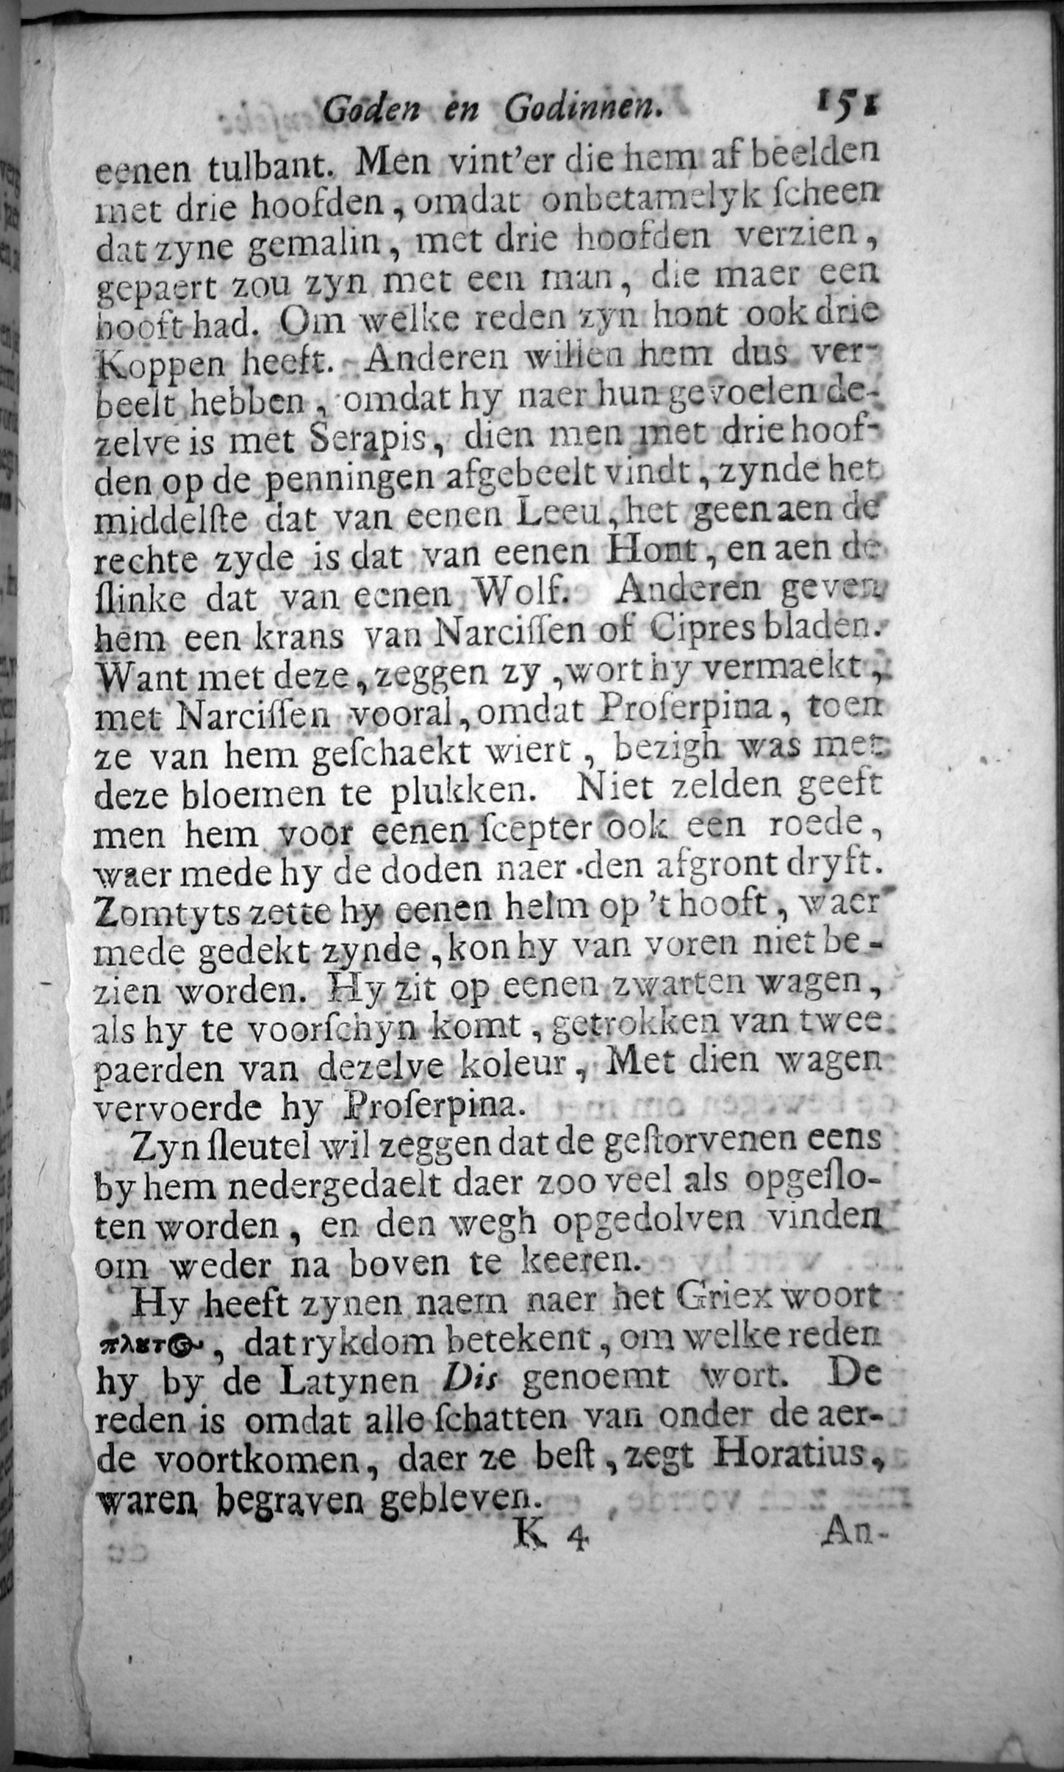 Goden en Godinnen. 151
eenen tulbant. Men vint'er die hem afbeelden
met drie hoofden, omdat onbetamelyk ſcheen
dat zyne gemalin, met drie hoofden verzien,
gepaert zou zyn met een man, die maer een
hooft had. Om welke reden zyn hont ook drie
Koppen heeft. Anderen willen hem dus ver-
beelt hebben, omdat hy naer hun gevoelen de-
zelve is met Serapis, dien men met drie hoof-
den op de penningen afgebeelt vindt, zynde het
middelſte dat van eenen Leeu, het geen aen de
rechte zyde is dat van eenen Hont, en aen de
ſlinke dat van eenen Wolf. Anderen geven
hem een krans van Narciſſen of Cipres bladen.
Want met deze, zeggen zy, wort hy vermaekt,
met Narciſſen vooral, omdat Proſerpina, toen
ze van hem geſchaekt wiert, bezigh was met
deze bloemen te plukken. Niet zelden geeft
men hem voor eenen ſcepter ook een roede,
waer mede hy de doden naer den afgront dryft.
Zomtyts zette hy eenen helm op 't hooft, waer
mede gedekt zynde, kon hy van voren niet be-
zien worden. Hy zit op eenen zwarten wagen,
als hy te voorſchyn komt, getrokken van twee
paerden van dezelve koleur, Met dien wagen
vervoerde hy Proſerpina.
Zyn ſleutel wil zeggen dat de geſtorvenen eens
by hem nedergedaelt daer zoo veel als opgeſlo-
ten worden, en den wegh opgedolven vinden
om weder na boven te keeren.
Hy heeft zynen naem naer het Griex woort
πλȣτ(Θ-, dat rykdom betekent, om welke reden
hy by de Latynen Dis genoemt wort. De
reden is omdat alle ſchatten van onder de aer-
de voortkomen, daer ze beſt, zegt Horatius,
waren begraven gebleven.
K 4 An-